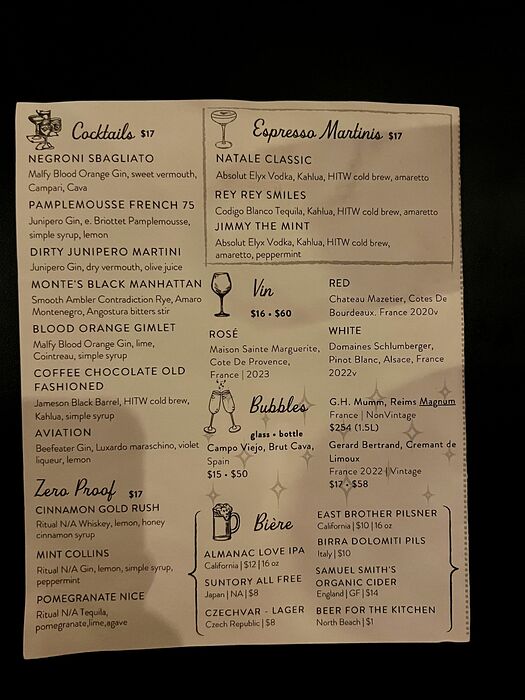 Cocktails $17
NEGRONI SBAGLIATO
Malfy Blood Orange Gin, sweet vermouth,
Campari, Cava
PAMPLEMOUSSE FRENCH 75
Junipero Gin, e. Briottet Pamplemousse,
simple syrup, lemon
DIRTY JUNIPERO MARTINI
Junipero Gin, dry vermouth, olive juice
MONTE'S BLACK MANHATTAN
Smooth Ambler Contradiction Rye, Amaro
Montenegro, Angostura bitters stir
BLOOD ORANGE GIMLET
Malfy Blood Orange Gin, lime,
Cointreau, simple syrup
COFFEE CHOCOLATE OLD
FASHIONED
Jameson Black Barrel, HITW cold brew,
Kahlua, simple syrup
AVIATION
Beefeater Gin, Luxardo maraschino, violet
liqueur, lemon
Zero Proof $17
CINNAMON GOLD RUSH
Ritual N/A Whiskey, lemon, honey
cinnamon syrup
MINT COLLINS
Ritual N/A Gin, lemon, simple syrup,
peppermint
POMEGRANATE NICE
Ritual N/A Tequila,
pomegranate,lime,agave
Espresso Martinis $17
NATALE CLASSIC
Absolut Elyx Vodka, Kahlua, HITW cold brew, amaretto
REY REY SMILES
Codigo Blanco Tequila, Kahlua, HITW cold brew, amaretto
JIMMY THE MINT
Absolut Elyx Vodka, Kahlua, HITW cold brew,
amaretto, peppermint
Vin
$16 • $60
ROSÉ
Maison Sainte Marguerite,
Cote De Provence,
France | 2023
RED
Chateau Mazetier, Cotes De
Bourdeaux. France 2020v
WHITE
Domaines Schlumberger,
Pinot Blanc, Alsace, France
2022v
Bubbles
glass • bottle
Campo Viejo, Brut Cava,
Spain
$15 • $50
G.H. Mumm, Reims Magnum
France | NonVintage
$254 (1.5L)
Gerard Bertrand, Cremant de
Limoux
France 2022 | Vintage
$17 • $58
Bière
ALMANAC LOVE IPA
California | $12 | 16 oz
SUNTORY ALL FREE
Japan | NA | $8
CZECHVAR - LAGER
Czech Republic | $8
EAST BROTHER PILSNER
California | $10 | 16 oz
BIRRA DOLOMITI PILS
Italy | $10
SAMUEL SMITH'S
ORGANIC CIDER
England | GF | $14
BEER FOR THE KITCHEN
North Beach | $1